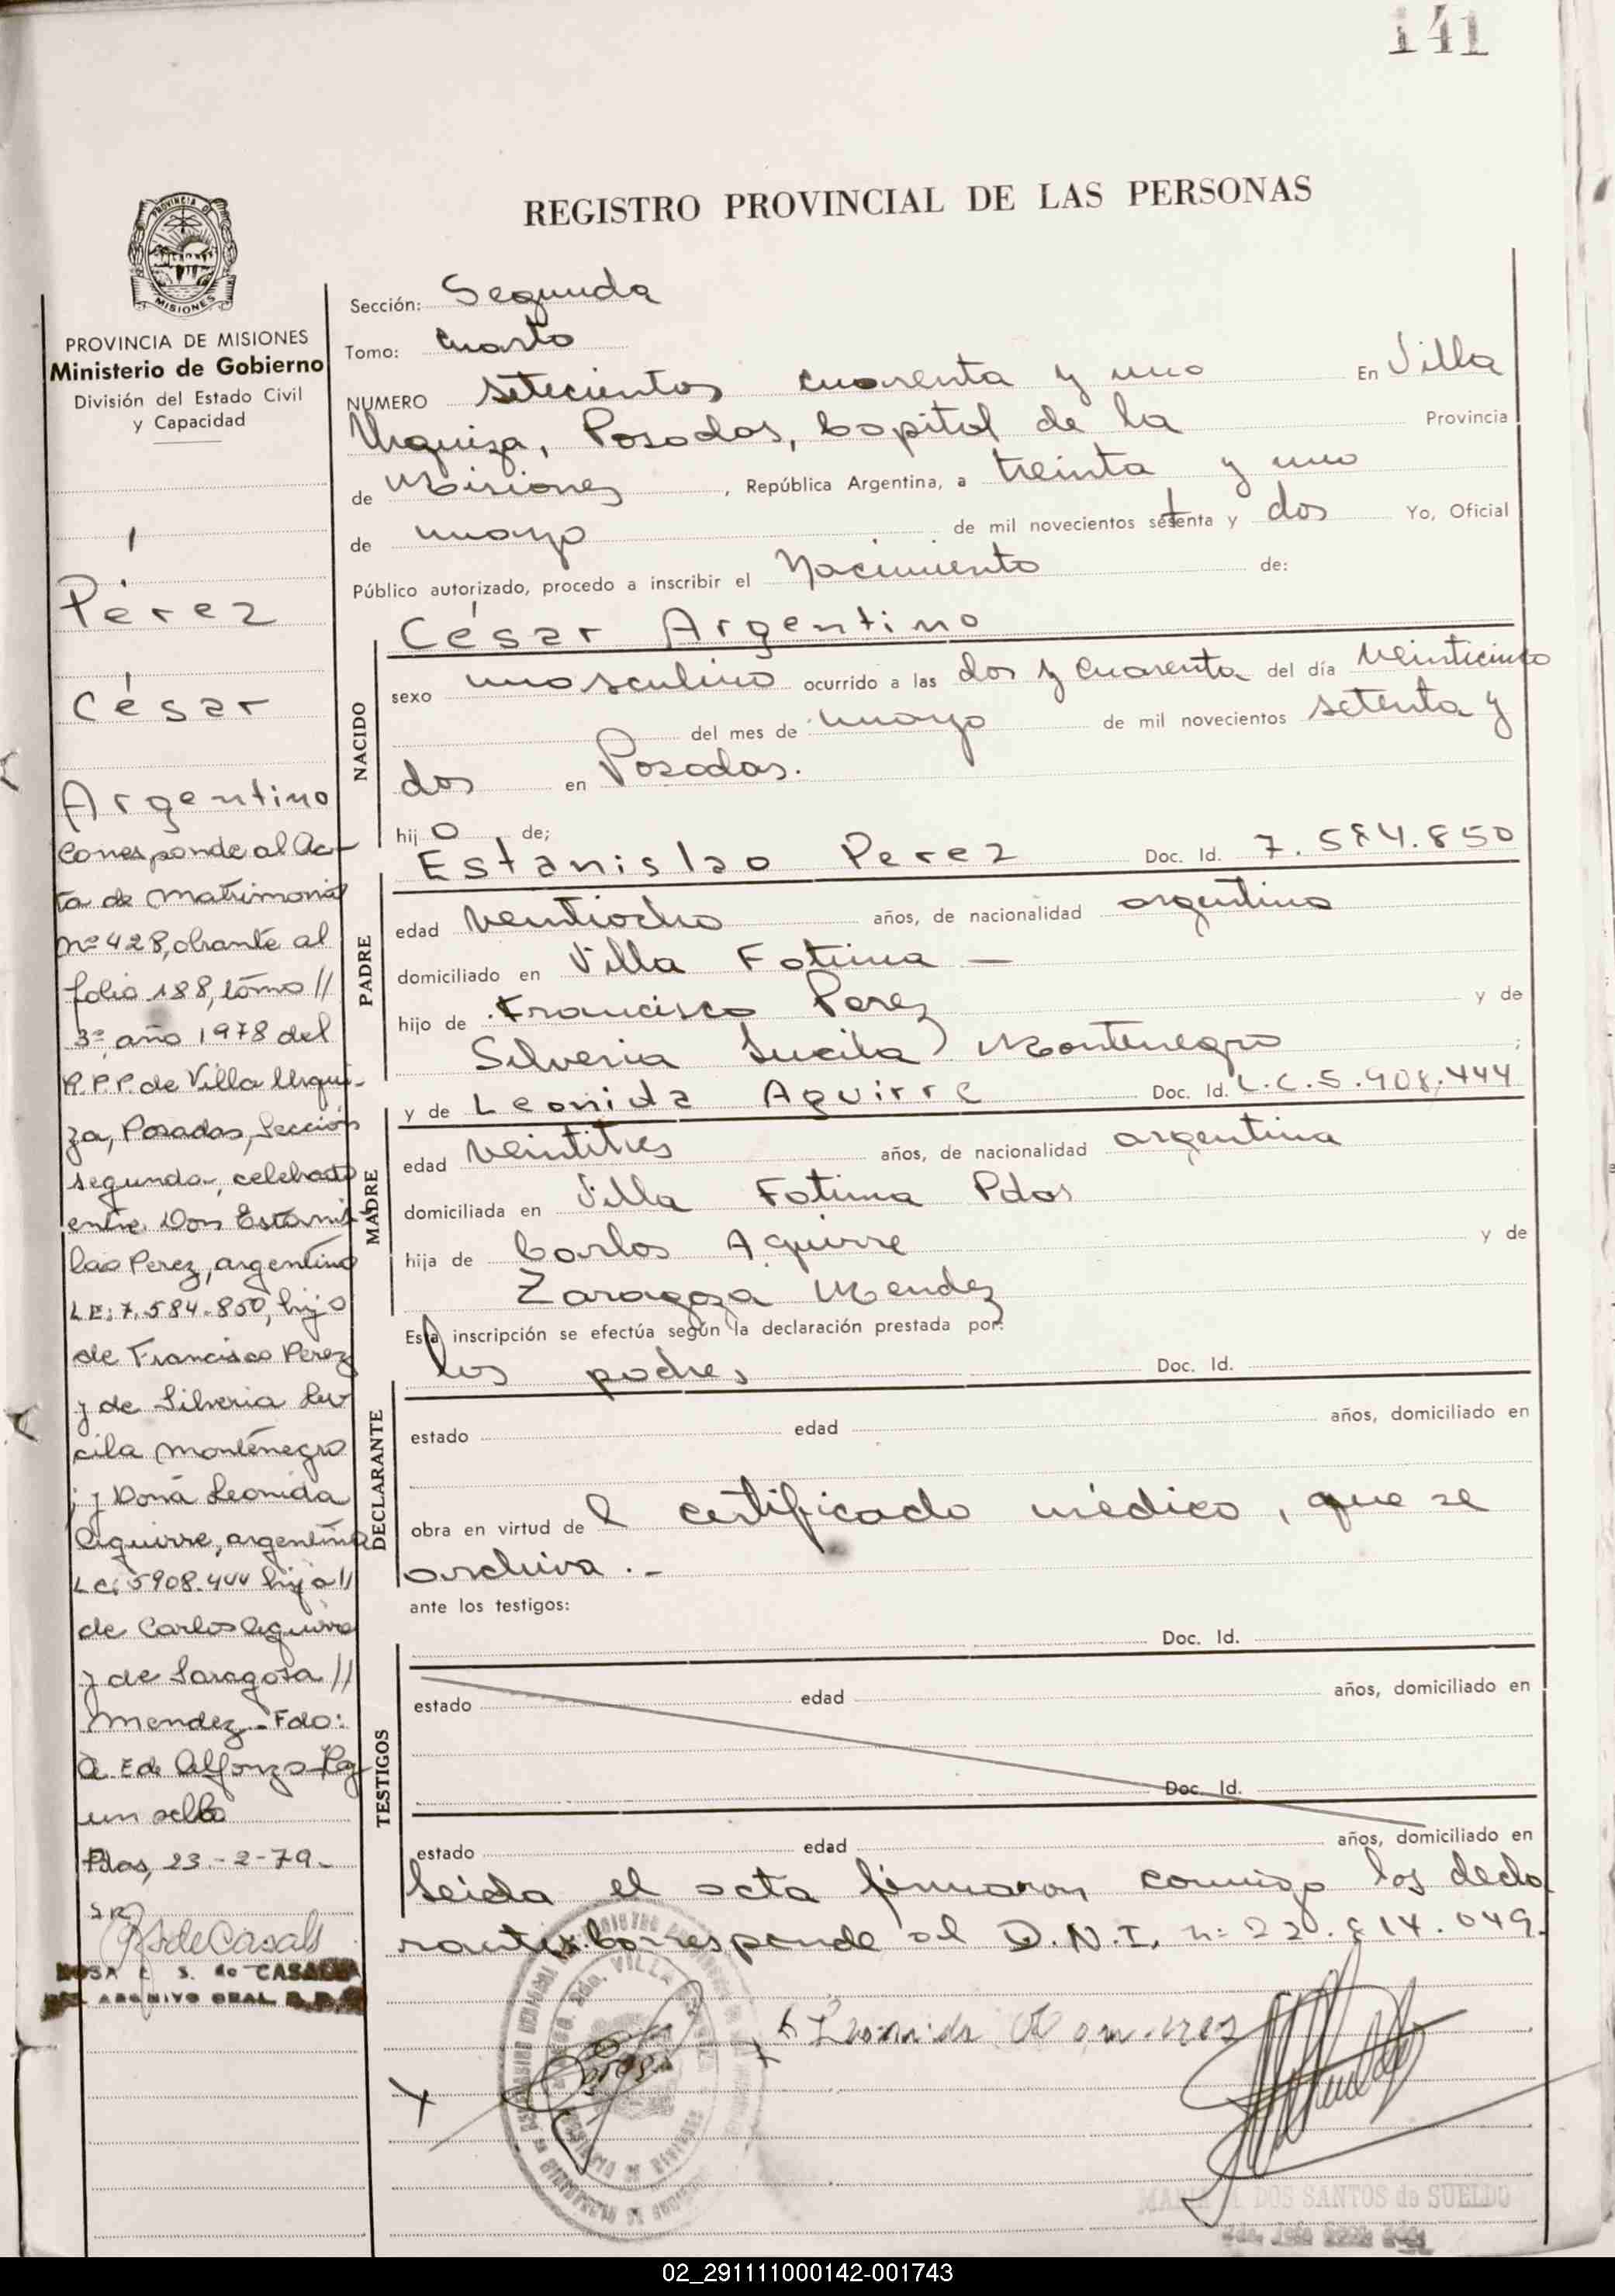 141
REGISTRO PROVINCIAL DE LAS PERSONAS
PROVINCIA DE MISIONES
Ministerio de Gobierno
División del Estado Civil
y Capacidad
Pérez
César
Argentino
Corresponde al Ac-
ta de Matrimonio
nº 428, obrante al
folio 188, tomo //
3º año 1978 del
R.P.P. de Villa Urqui-
za, Posadas, Sección
segunda, celebrado
entre Don Estanis
lao Perez, argentino
LE: 7.584.850, hijo
de Francisco Perez
y de Silveria Lu
cila Montenegro
; y Doña Leonida
Aguirre, argentina
LC: 5908.444 hija //
de Carlos Aguirre
y de Saragosa //
Mendez. Fdo:
A. E de Alfonzo Hay
un sello
Pdas, 23-2-79.
RsdeCasals
ROSA E. S. de CASALS
Sección: Segunda
Tomo: Cuarto
NUMERO setecientos cuarenta y uno En Villa
Urquiza, Posadas, Capital de la Provincia
de Misiones, República Argentina, a treinta y uno
de mayo de mil novecientos setenta y dos Yo, Oficial
Público autorizado, procedo a inscribir el Nacimiento de:
César Argentino
NACIDO
sexo masculino ocurrido a las dos y cuarenta del día veinticinco
del mes de mayo de mil novecientos setenta y
dos en Posadas.
hijo de;
Estanislao Perez Doc. Id. 7.584.850
PADRE
edad ventiocho años, de nacionalidad argentina
domiciliado en Villa Fatima —
hijo de Francisco Perez y de
Silveria Lucila Montenegro ;
y de Leonida Aguirre Doc. Id. L.C.5.908.444
MADRE
edad veintitres años, de nacionalidad argentina
domiciliada en Villa Fatima Pdas
hija de Carlos Aguirre y de
Zaragoza Mendez
Esta inscripción se efectúa según la declaración prestada por:
los padres Doc. Id.
DECLARANTE
estado edad años, domiciliado en
obra en virtud del certificado médico, que se
archiva.-
ante los testigos:
Doc. Id.
TESTIGOS
estado edad años, domiciliado en
Doc. Id.
estado edad años, domiciliado en
Leida el acta firmaron conmigo los decla
rantes. Corresponde al D.N.I. nº 22.814.049.
Leonida
MARIA A. DOS SANTOS de SUELDO
02_291111000142-001743